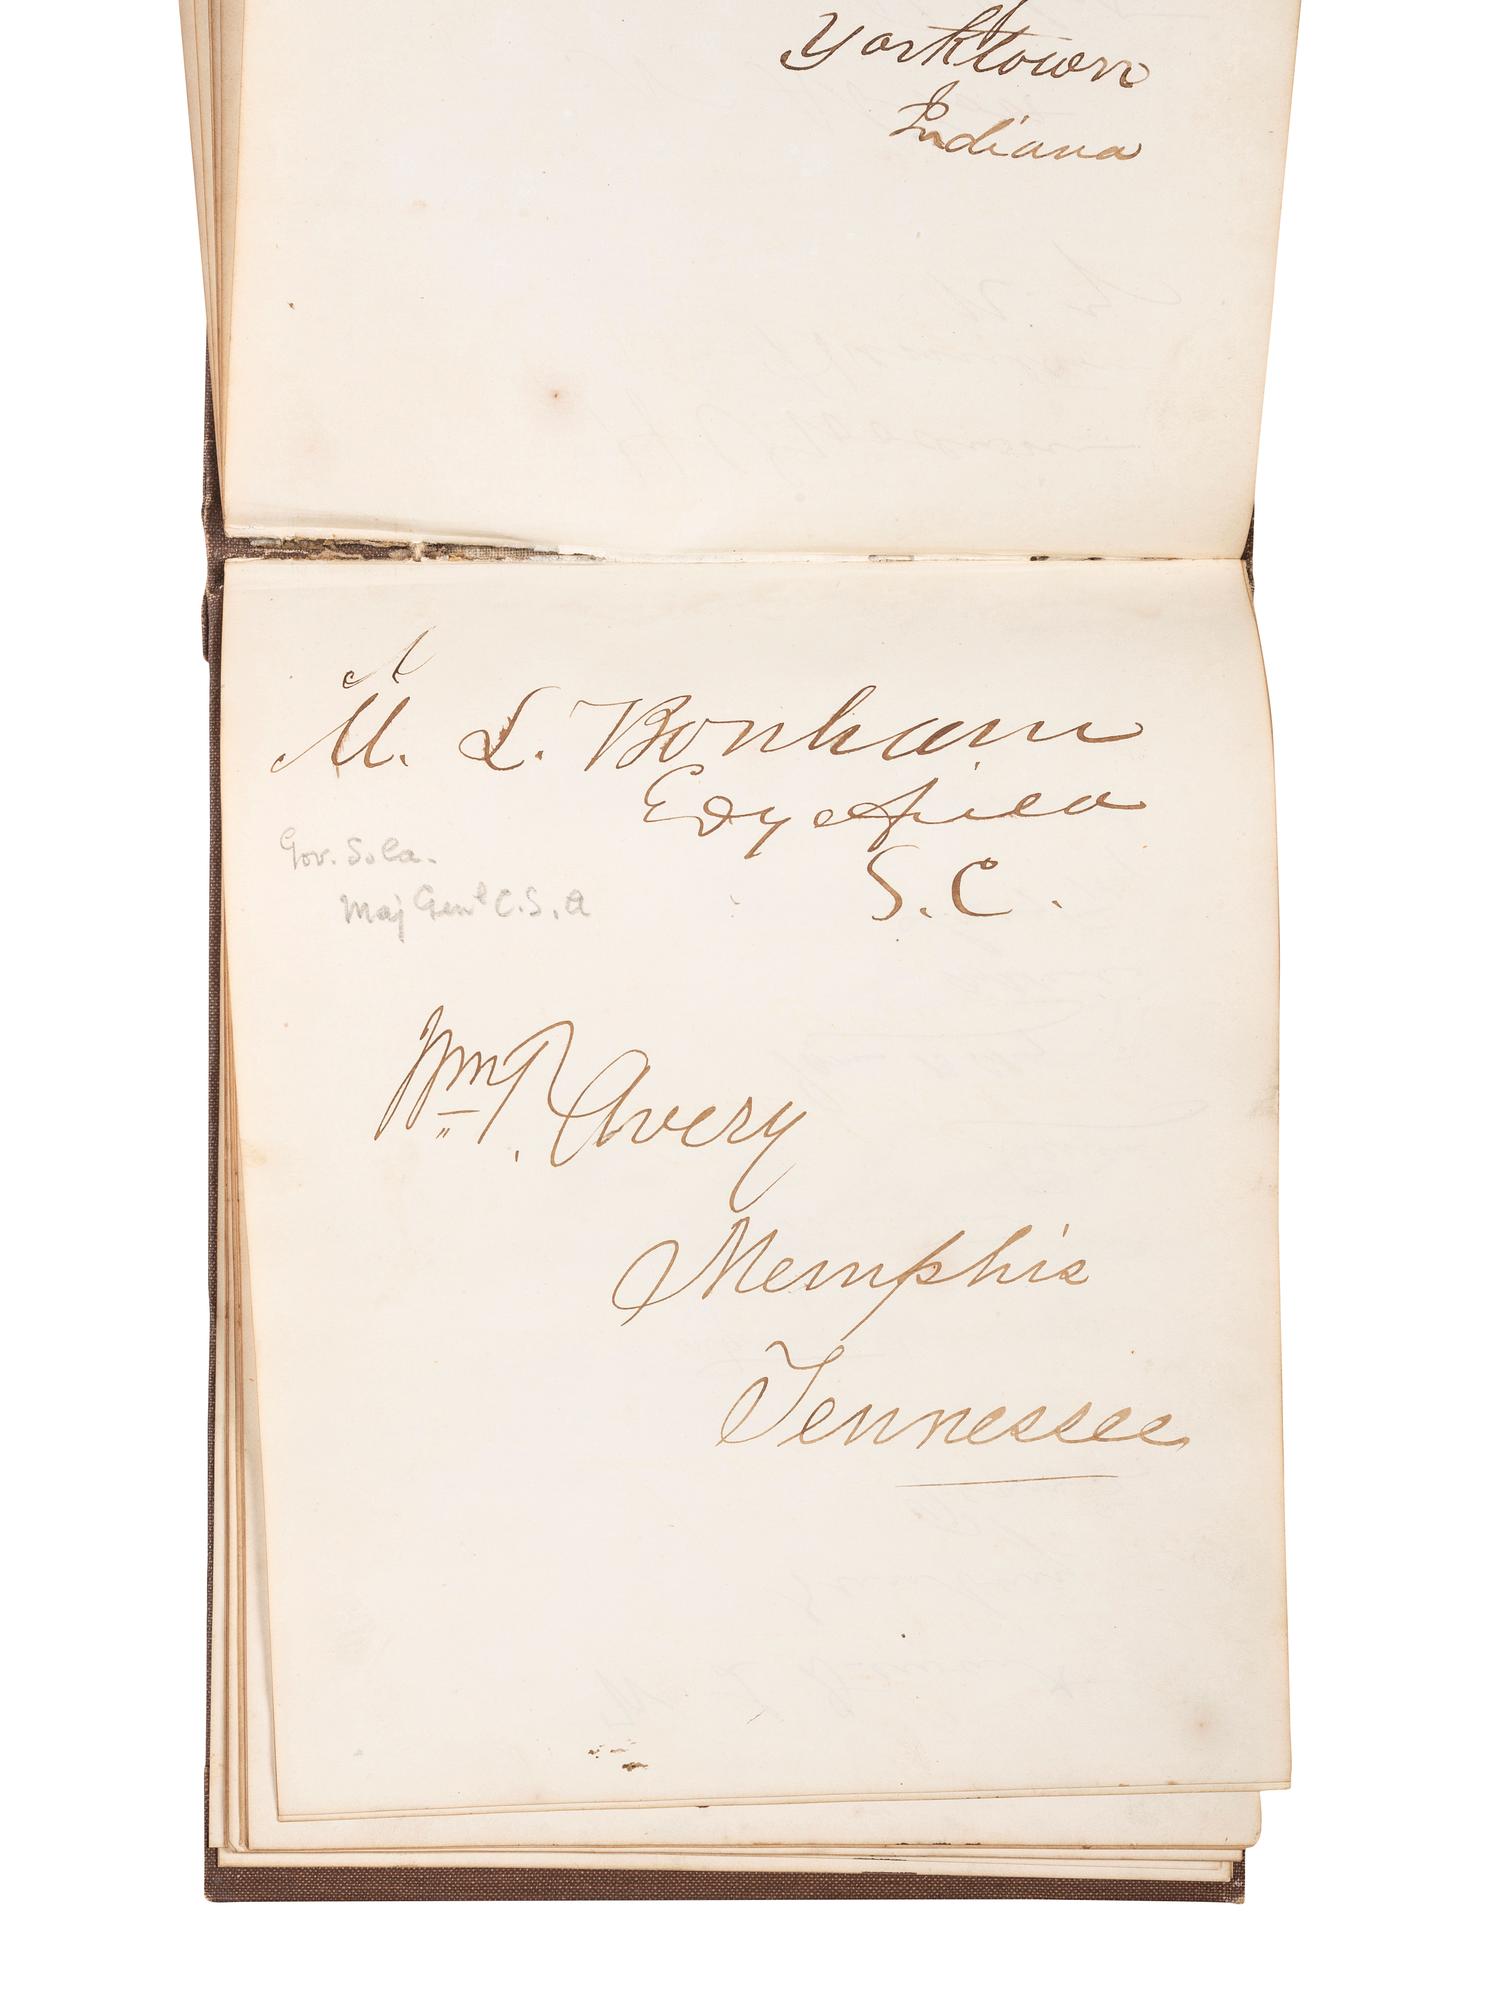 Yorktown
Indiana
M. L. Bonham
Edgefield
S. C.
Gov. So Ca.
Maj Genl C.S.A
Wm T. Avery
Memphis
Tennessee